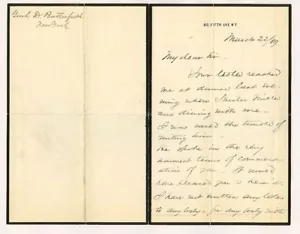 Genl. D. Butterfield
New York
616, FIFTH AVE. N.Y.
March 22/89
My dear Sir.
Your letter reached
me at dinner last eve-
ning where
was dining with me.
I was saved the trouble of
writing him.
He spoke in the very
warmest terms of commend-
ation of you. It would
have pleased you to hear it
I have not written any letter
to any body, for any body with